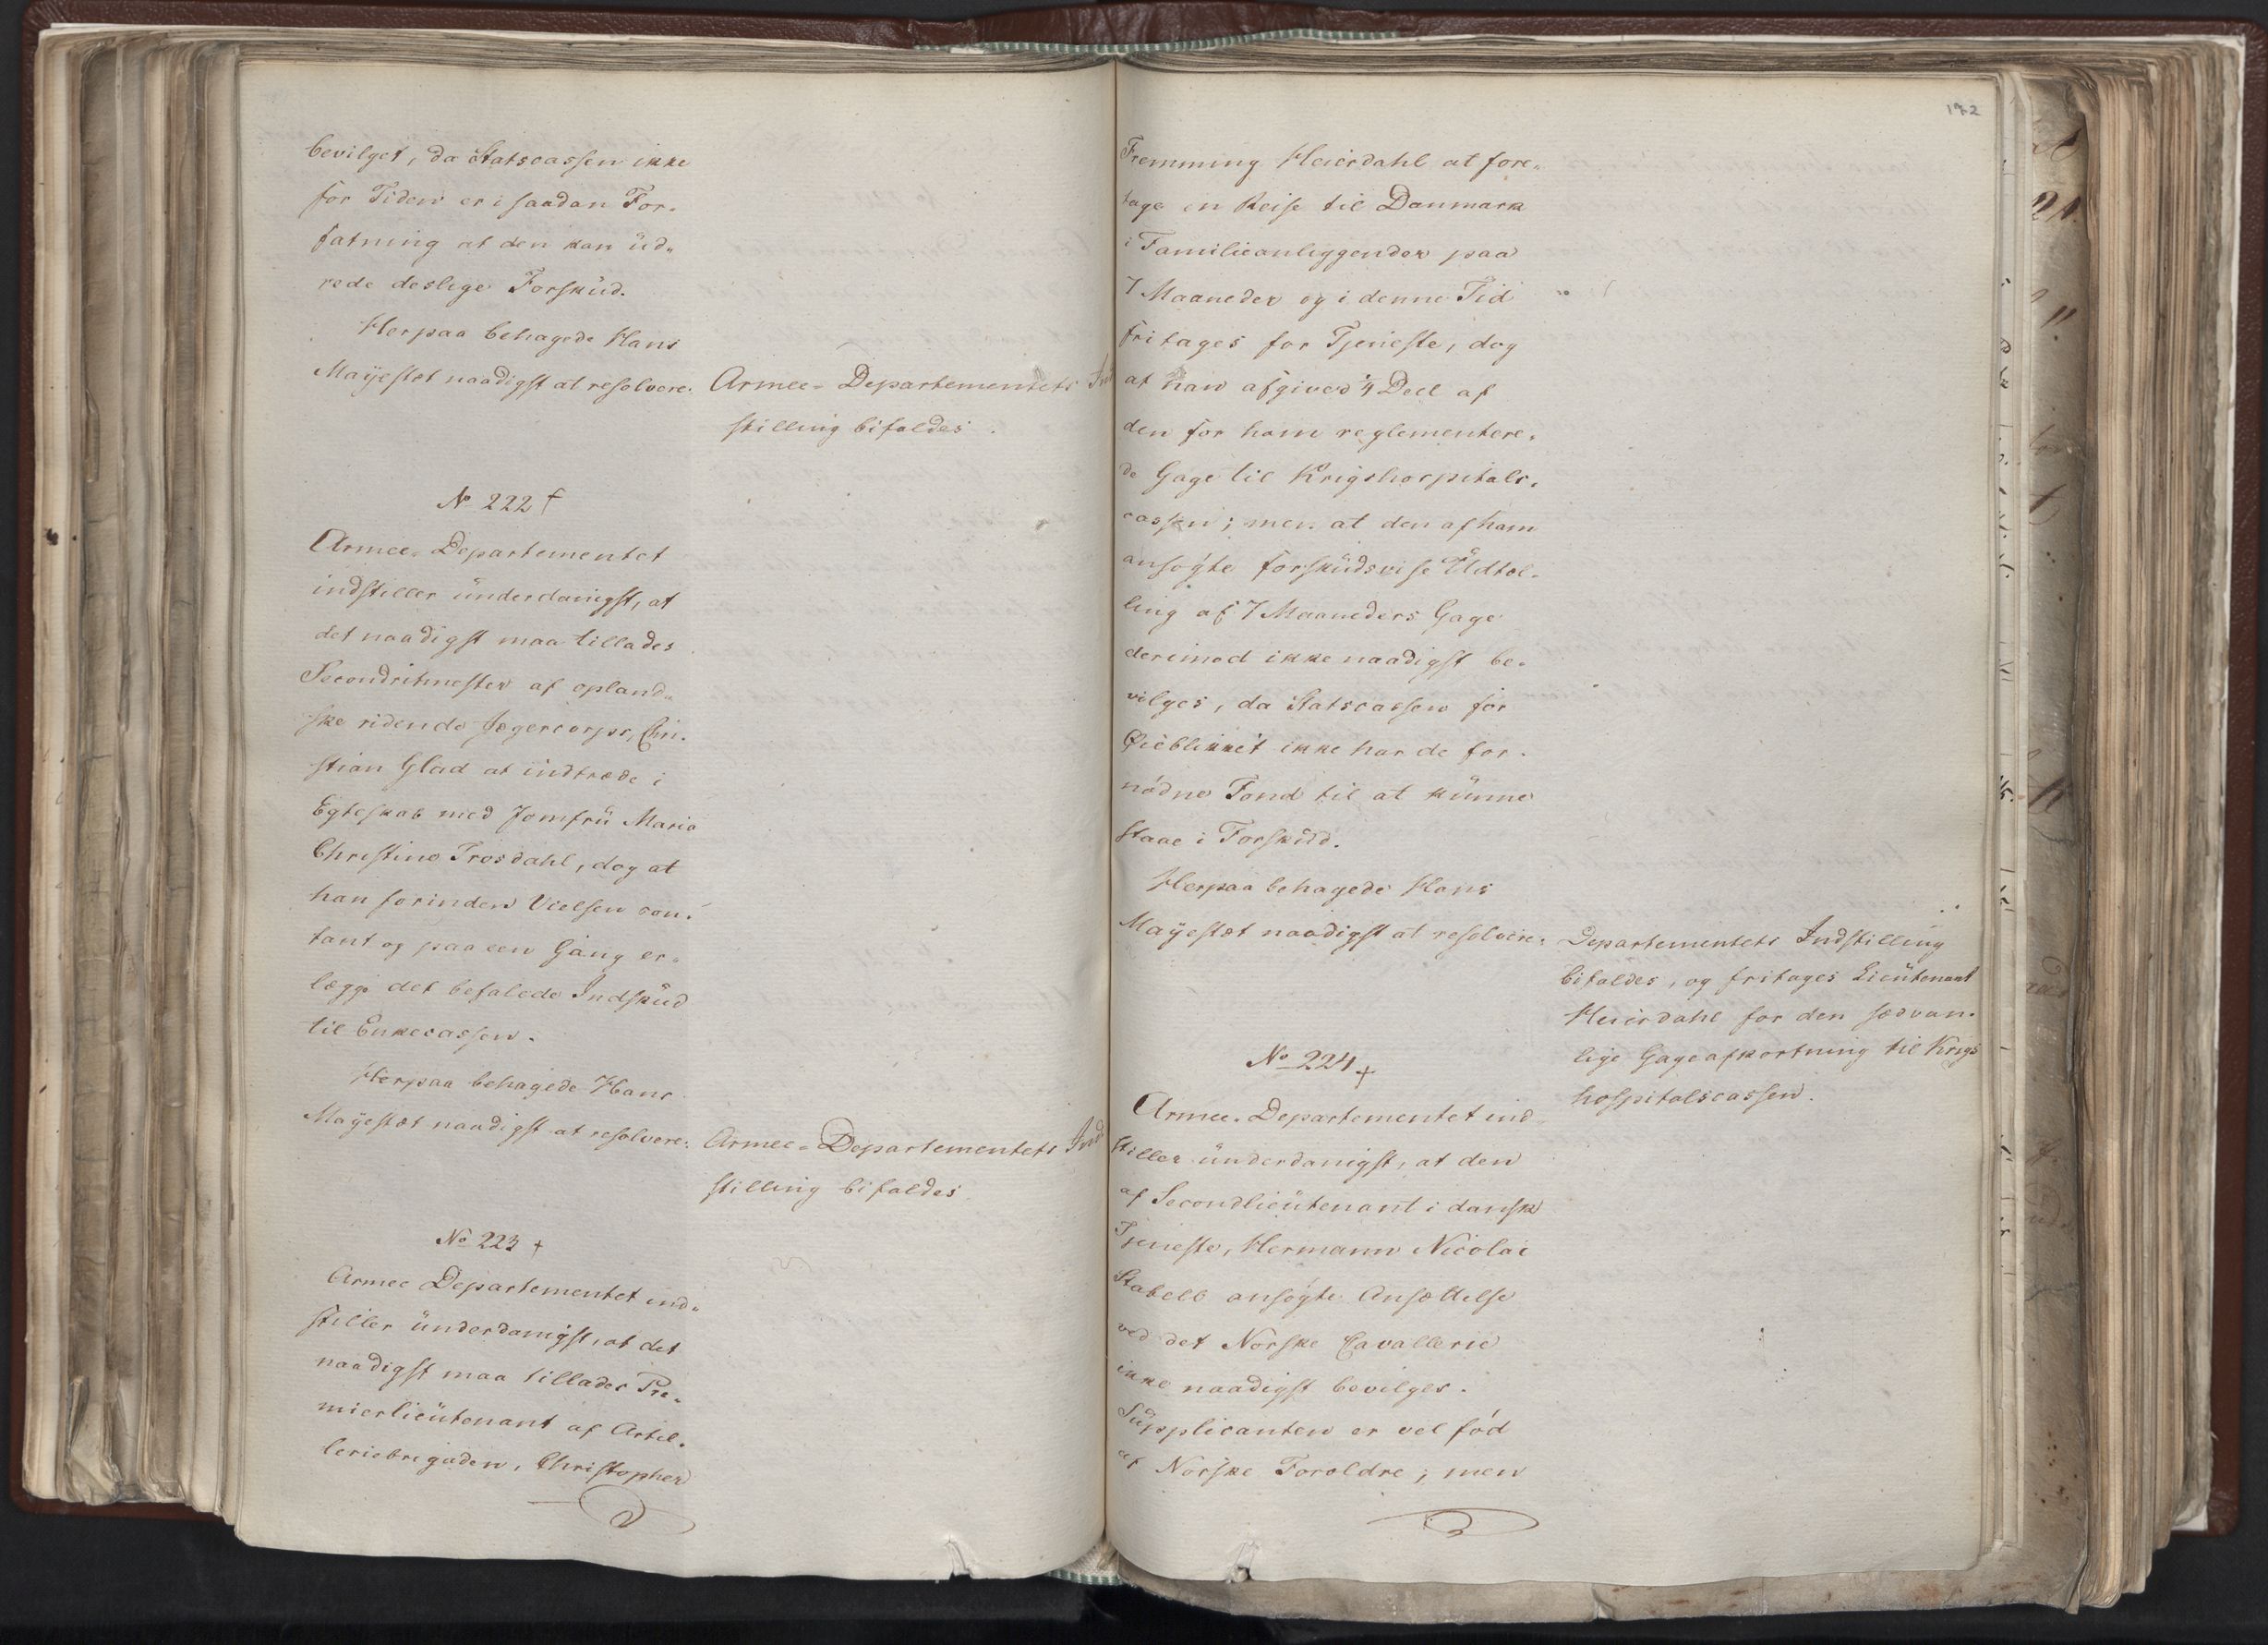 bevilget, da Statscassen ikke
for Tiden er i saadan For-
fatning at den kan üd-
rede deslige Forskud.
Herpaa behagede Hans
Mayestæt naadigst at resolvere:
Armee-Departementets Ind
stilling bifaldes.
No 222 †
Armee-Departementet
indstiller ünderdanigst, at
det naadigst maa tillades
Secondritmester af opland-
ske ridende Jægercorps, Chri-
stian Glad at indtræde i
Egteskab med Jomfrü Maria
Christine Trosdahl, dog at
han forinden Vielsen con-
tant og paa een Gang er-
lægge det befalede Indskud
til Enkecassen.
Herpaa behagede Hans
Mayestæt naadigst at resolvere:
Armee-Departementets Ind
stilling bifaldes
No 223 †
Armee Departementet ind-
stiller ünderdanigst, at det
naadigst maa tillades Pre-
mierlieütenant af Artil-
leriebrigaden, Christopher
172
Fremming Heierdahl at fore-
tage en Reise til Danmark
i Familieanliggender paa
7 Maaneder og i denne Tid
fritages for Tjeneste, dog
at han afgiver 1/4 Deel af
den for ham reglementere-
de Gage til Krigshospitals-
cassen; men at den af ham
ansøgte forskudsvise Üdtæl-
ling af 7 Maaneders Gage
derimod ikke naadigst be-
vilges, da Statscassen for
Øieblikket ikke har de for-
nødne Fond til at künne
staae i Forskud.
Herpaa behagede Hans
Mayestæt naadigst at resolvere:
Departementets Indstilling
bifaldes, og fritages Lieütenant
Heierdahl for den sædvan-
lige Gageafkortning til Krigs
hospitalscassen.
No 224 †
Armee-Departementet ind-
stiller ünderdanigst, at den
af Secondlieütenant i dansk
Tjeneste, Hermann Nicolai
Stabell ansøgte Ansættelse
ved det Norske Cavallerie
ikke naadigst bevilges.
Süpplicanten er vel fød
af Norske Forældre; men